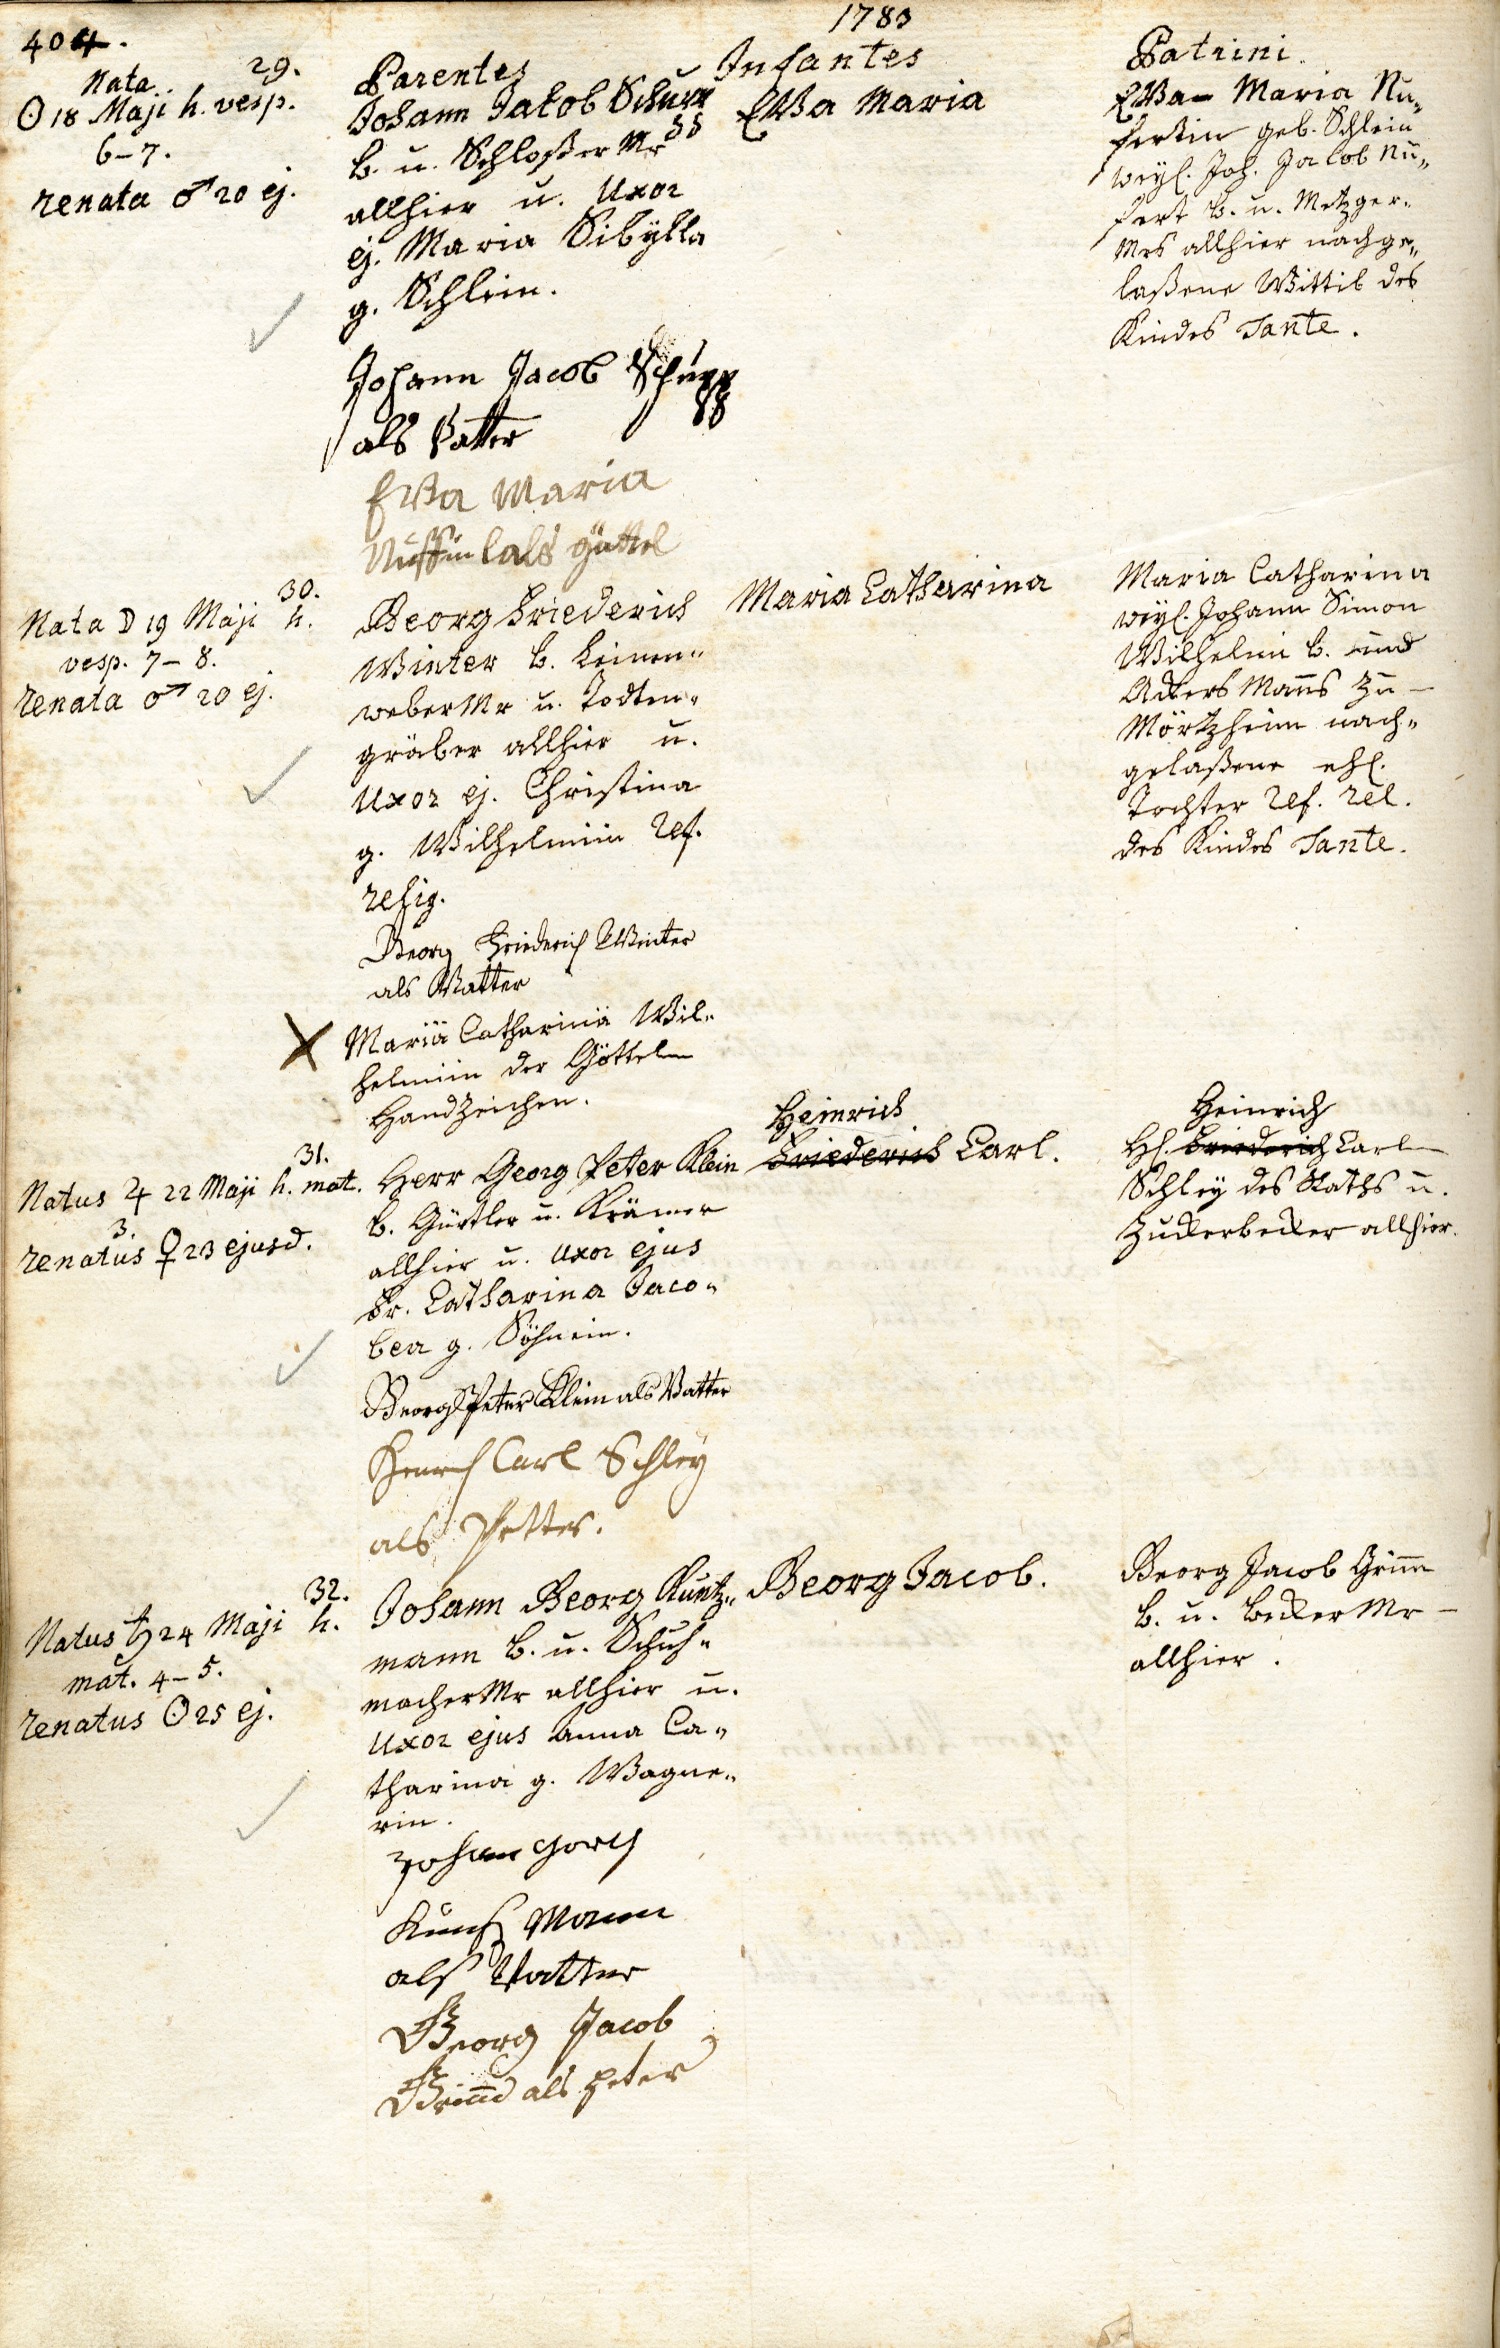 1783
404.
29.
Nata
☉ 18 Maji h. vesp.
6-7.
renata ♂ 20 ej.
Parentes
Johann Jacob Schupp
b. u. Schloßer Mr
allhier u. Uxor
ej. Maria Sibÿlla
g. Schlein.
Johann Jacob Schupp
als Vatter
Eva Maria
als göttel
Infantes
Eva Maria
Patrini
Eva Maria Nu„
fertin geb. Schlein
weyl. Joh. Jacob Nu„
fert b. u. Metzger„
Mrs allhier nachge„
laßene Wittib des
Kindes Tante.
30.
Nata ☽ 19 Maji h.
vesp. 7-8.
renata ♂ 20 ej.
Georg Friederich
Winter b. Leinen„
weber Mr u. Todten„
gräber allhier u.
Uxor ej. Christina
g. Wilhelmin ref.
relig.
Georg Friederich Winter
als Vatter
X Maria Catharina Wil„
helmin der Göttel
Handzeichen.
Maria Catharina
Maria Catharina
weyl. Johann Simon
Wilhelmi b. und
Ackers Manns zu
Mörtzheim nach„
gelaßene ehl.
Tochter ref. rel.
des Kindes Tante.
31.
Natus ♃ 22 Maji h. mat.
3.
renatus ♀ 23 ejusd.
Herr Georg Peter Klein
b. Gürtler u. Krämer
allhier u. Uxor ejus
Fr. Catharina Jaco„
bea g. Söhnein.
Georg Peter Klein als Vatter
Henrich Carl Schleÿ
als Petter.
Heinrich
Friederich Carl.
Heinrich
H. Friederich Carl
Schleÿ des Raths u.
Zuckerbecker allhier.
32.
Natus ♄ 24 Maji h.
mat. 4-5.
renatus ☉ 25 ej.
Johann Georg Kuntz„
mann b. u. Schuh„
macher Mr allhier u.
Uxor ejus Anna Ca„
tharina g. Wagne„
rin.
Johann Gorg
Kuntz Mann
als Vatter
Georg Jacob
Grimm als peter
Georg Jacob.
Georg Jacob Grimm
b. u. Becker Mr
allhier.